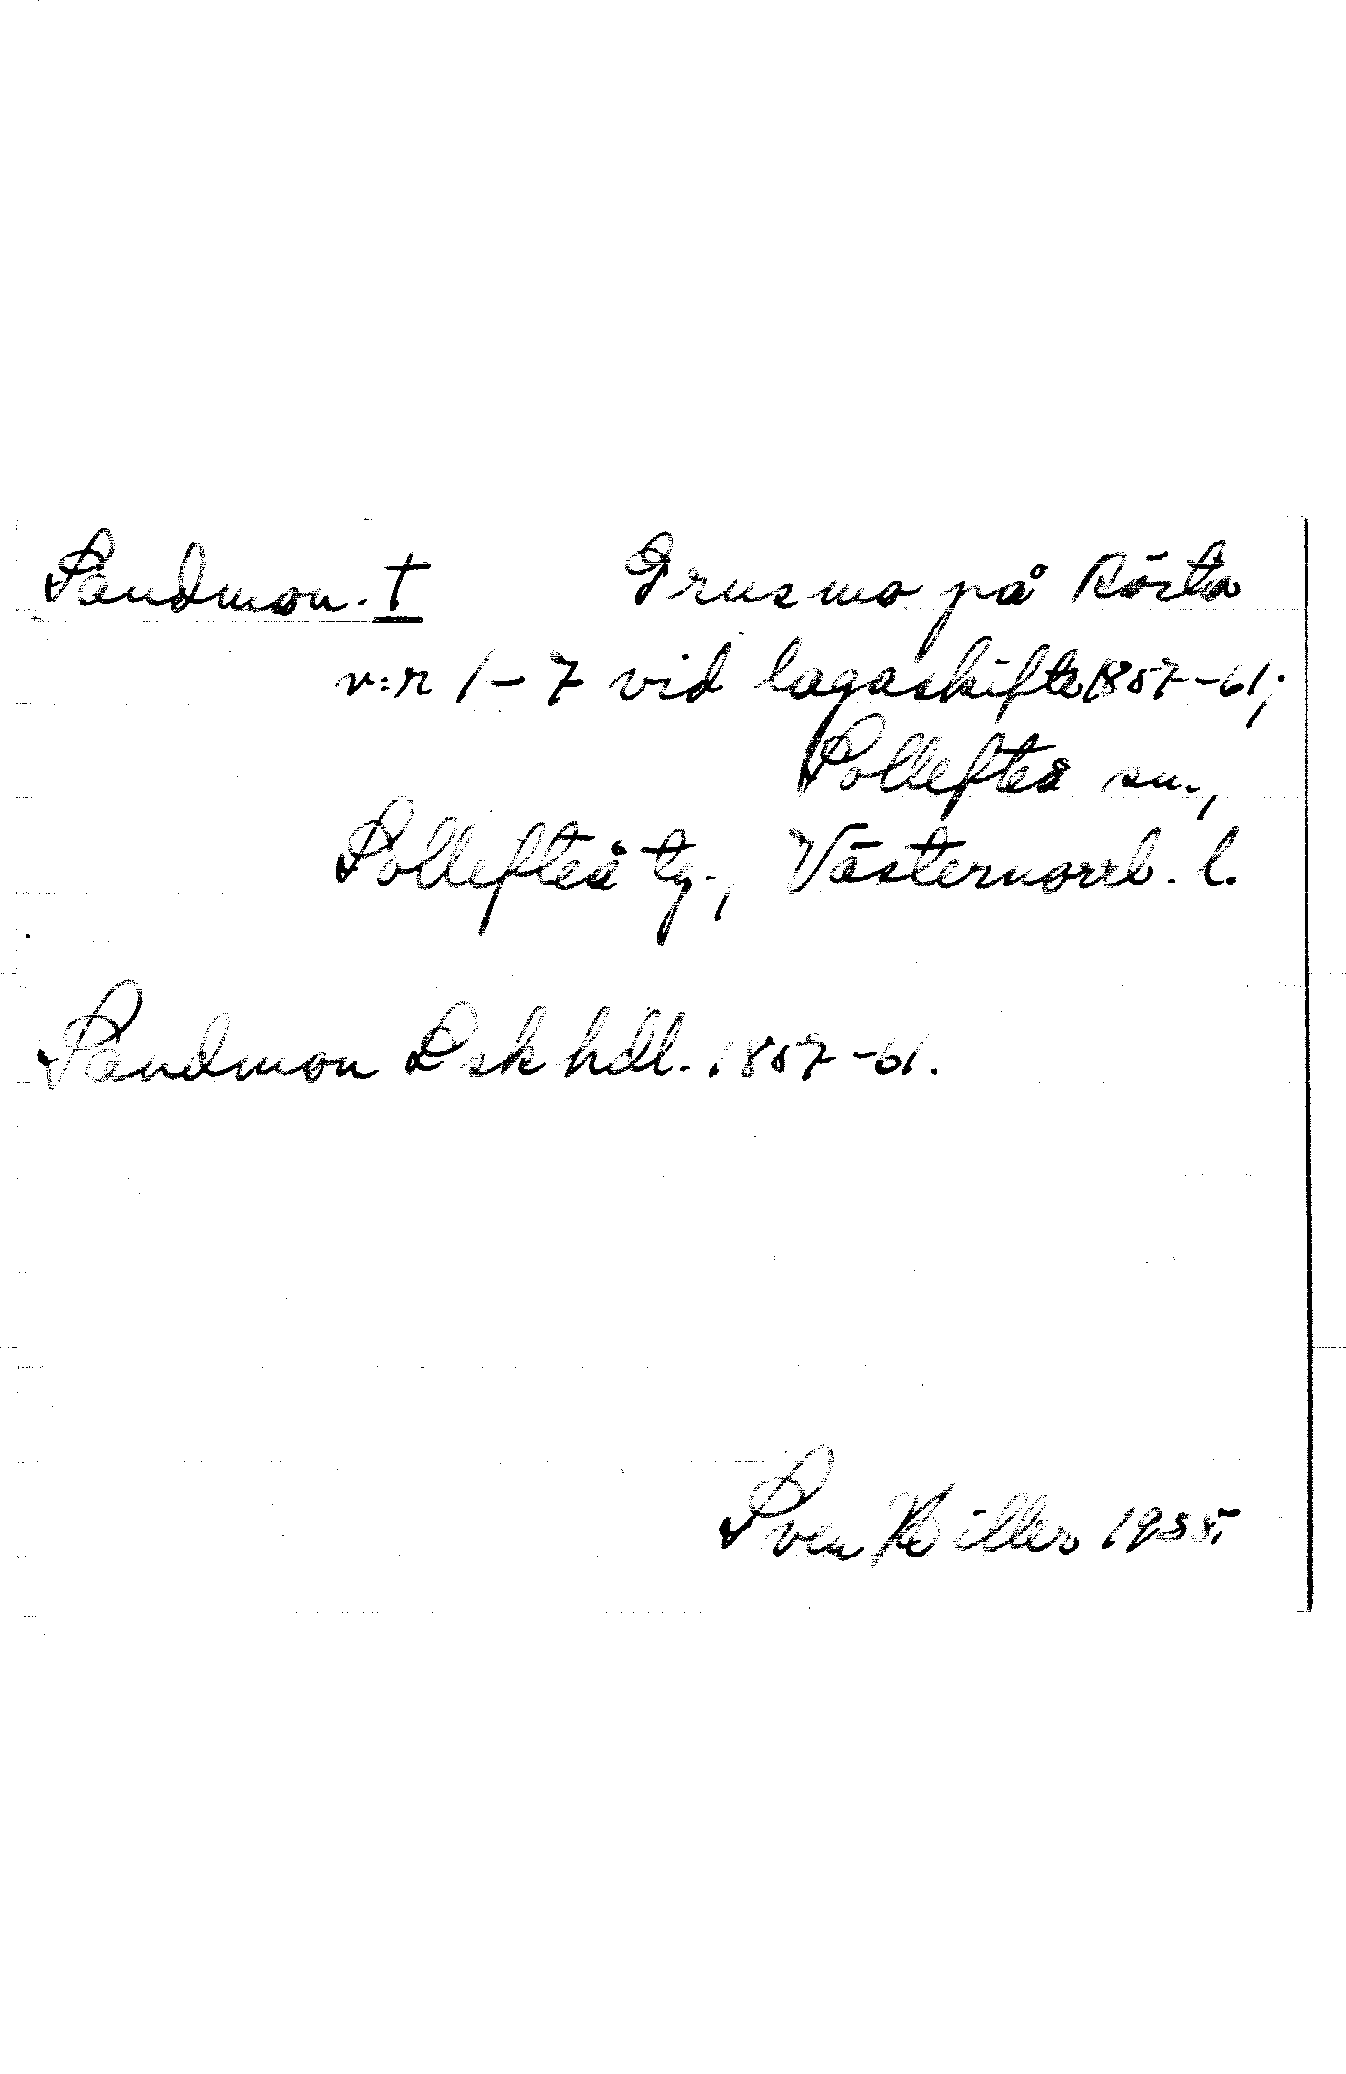 Sandmon. † Grusmo på Rösta
n:r 1-7 vid lagaskifte 1857-61;
Sollefteå sn.,
Sollefteå tg., Västernorrl. l.
Sandmon Lsk hdl. 1857-61.
Sven Hiller 1935.